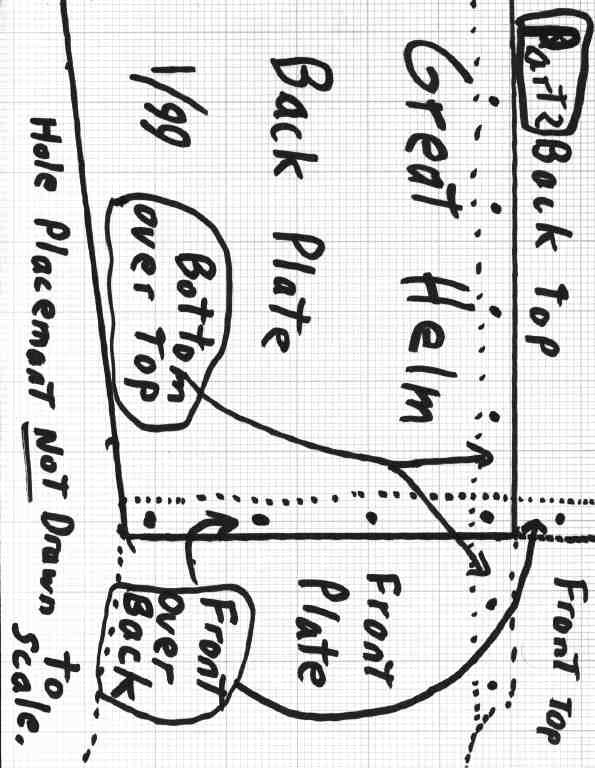 Part 2
Back Top
Front Top
Great Helm
Back Plate
Front
Plate
1/99
Bottom
over Top
Front
over
Back
Hole Placemant NOT Drawn
to
Scale.